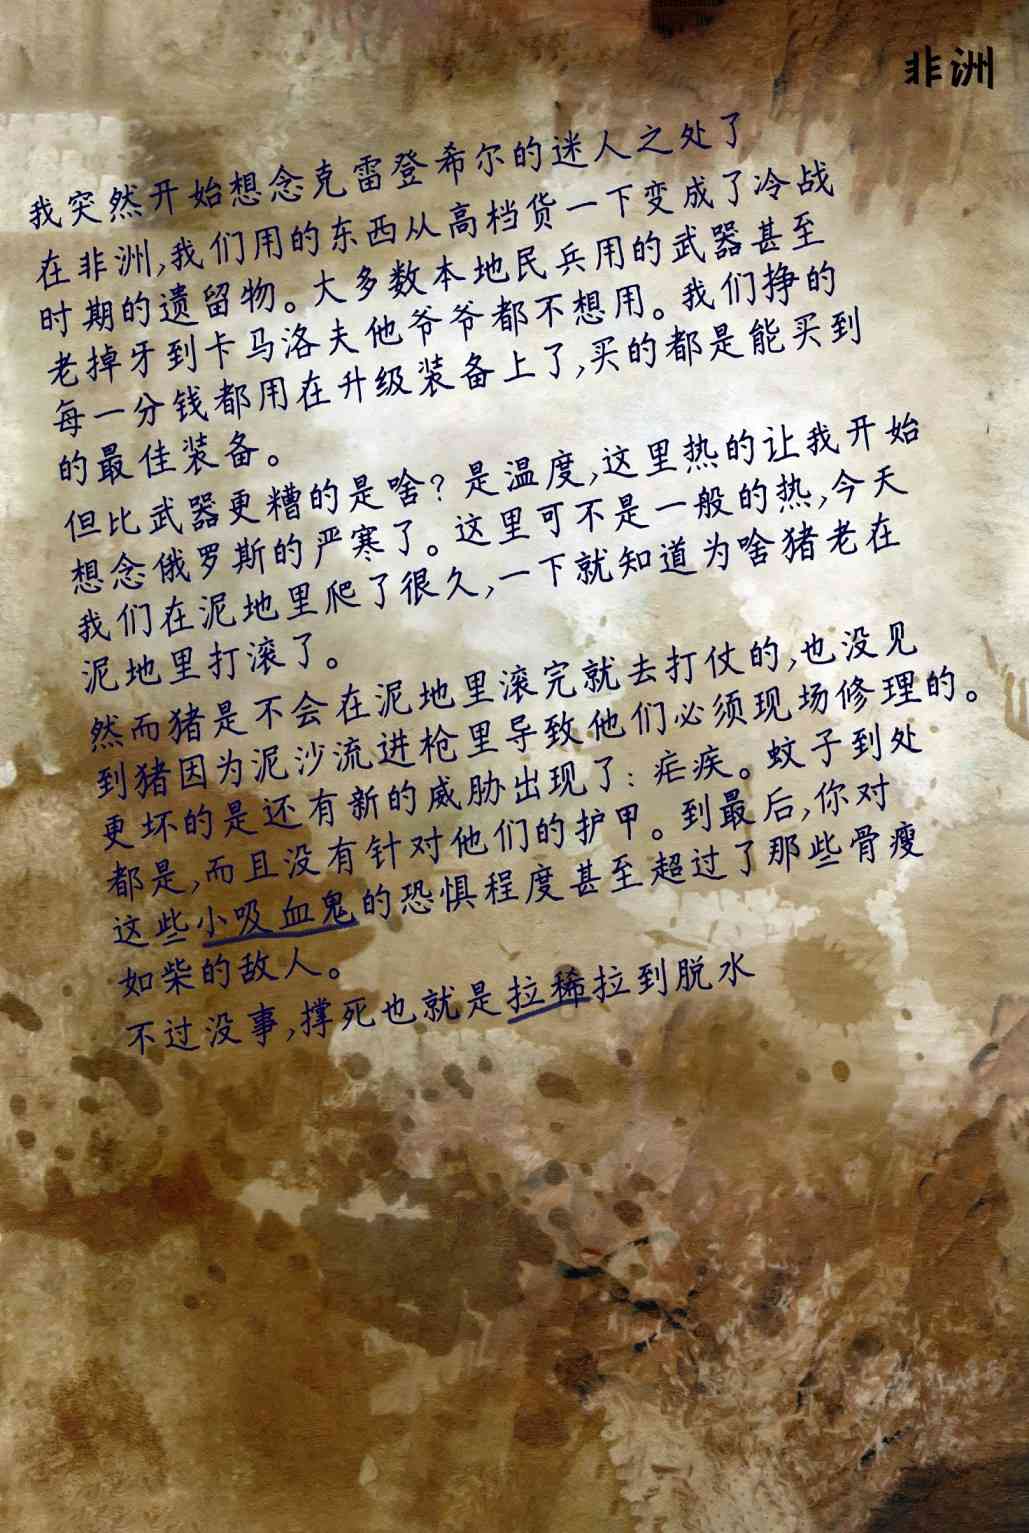 非洲
我突然开始想念克雷登希尔的迷人之处了
在非洲,我们用的东西从高档货一下变成了冷战
时期的遗留物。大多数本地民兵用的武器甚至
老掉牙到卡马洛夫他爷爷都不想用。我们挣的
每一分钱都用在升级装备上了,买的都是能买到
的最佳装备。
但比武器更糟的是啥?是温度,这里热的让我开始
想念俄罗斯的严寒了。这里可不是一般的热,今天
我们在泥地里爬了很久,一下就知道为啥猪老在
泥地里打滚了。
然而猪是不会在泥地里滚完就去打仗的,也没见
到猪因为泥沙流进枪里导致他们必须现场修理的。
更坏的是还有新的威胁出现了:疟疾。蚊子到处
都是,而且没有针对他们的护甲。到最后,你对
这些小吸血鬼的恐惧程度甚至超过了那些骨瘦
如柴的敌人。
不过没事,撑死也就是拉稀拉到脱水